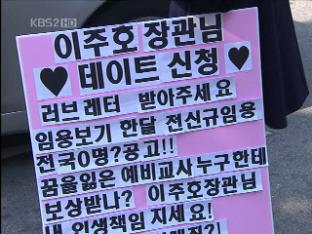 KBS2 HD
이주호 장관님
♥ 데이트 신청 ♥
러브 레터 받아주세요
임용보기 한달 전신규임용
전국0명?공고!!
꿈을잃은 예비교사 누구한테
보상받나? 이주호장관님
내 인생책임 지세요!